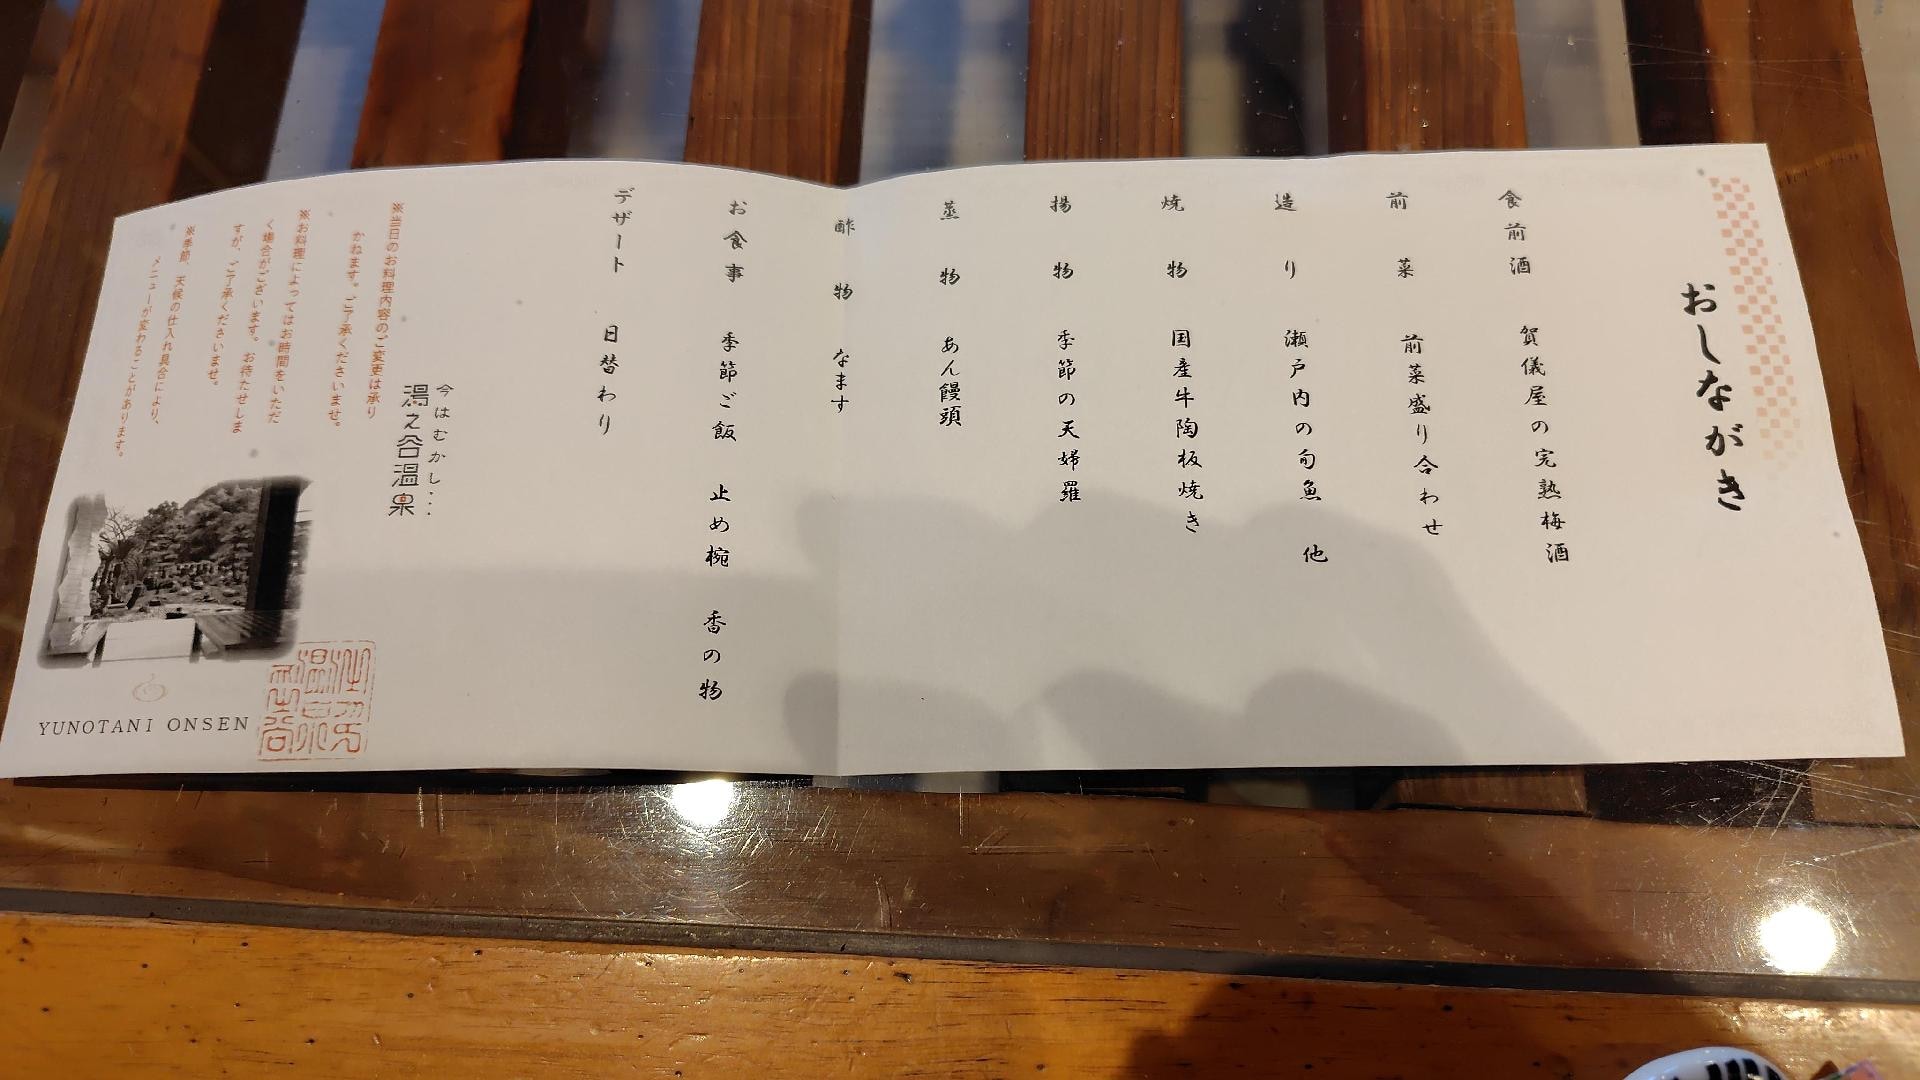 おしながき
食前酒 賀儀屋の完熟梅酒
前菜 前菜盛り合わせ
造り 瀬戸内の旬魚 他
焼物 国産牛陶板焼き
揚物 季節の天婦羅
蒸物 あん饅頭
酢物 なます
お食事 季節ご飯 止め椀 香の物
デザート 日替わり
今はむかし…
湯之谷温泉
※当日のお料理内容のご変更は承り
かねます。ご了承くださいませ。
※お料理によってはお時間をいただ
く場合がございます。お待たせしま
すが、ご了承くださいませ。
※季節、天候の仕入れ具合により、
メニューが変わることがあります。
YUNOTANI ONSEN